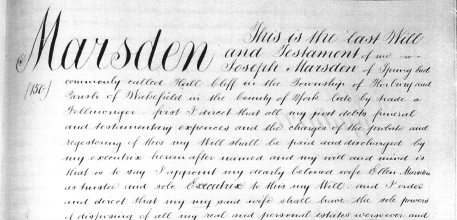 Marsden This is the last Will
and Testament of me
Joseph Marsden of Spring End
(150)
commonly called Hall Cliff in the Township of Horbury and
Parish of Wakefield in the County of York late by trade a
Fellmonger first I direct that all my just debts funeral
and testamentary expences and the charges of the probate and
registering of this my Will shall be paid and discharged by
my executrix herein after named and my will and mind is
that is to say I appoint my dearly beloved wife Ellen Marsden
as trustee and sole Executrix to this my Will and I order
and direct that my said wife shall have the sole powers
of disposing of all my real and personal estates whatsoever and